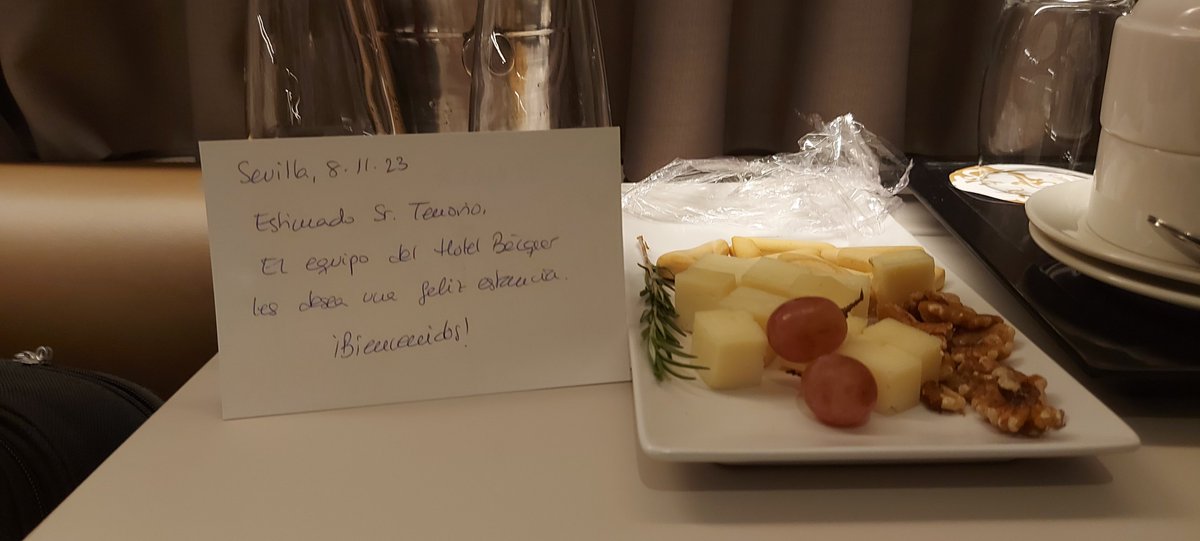 Sevilla, 8.11.23
Estimado Sr. Tenorio,
El equipo del Hotel Bécquer
les desea una feliz estancia.
¡Bienvenidos!